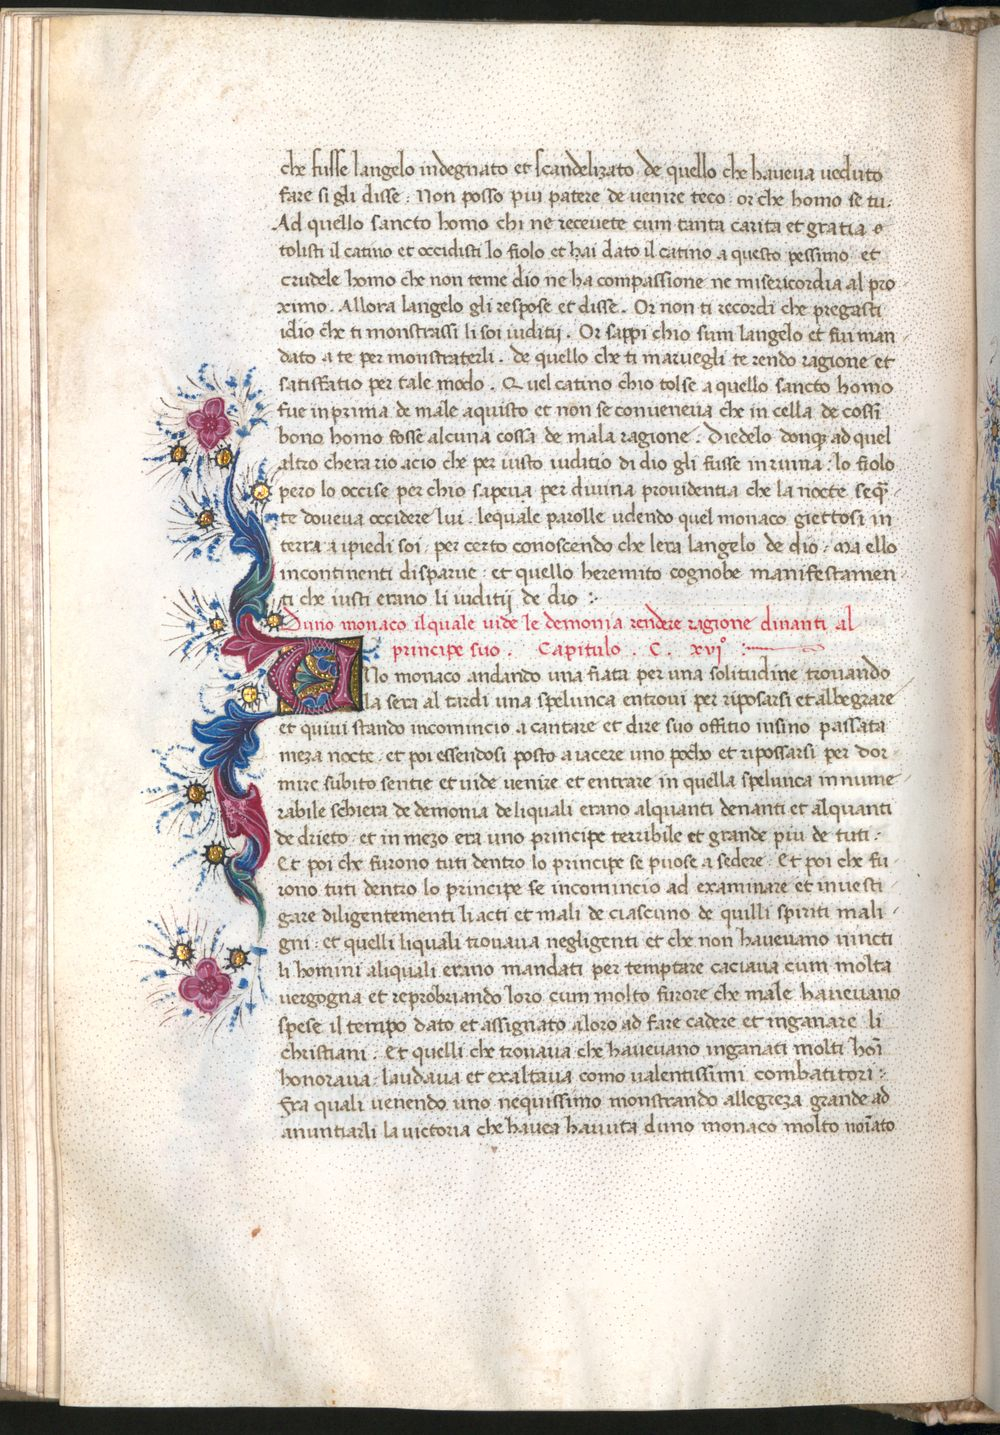 che fusse langelo indegnato et scandelizato de quello che haveva veduto
fare si gli disse : Non posso piu patere de venire teco : or che homo se tu :
Ad quello sancto homo chi ne recevete cum tanta carita et gratia e
tolisti il catino et occidisti lo fiolo et hai dato il catino a questo pessimo et
crudele homo che non teme dio ne ha compassione ne misericordia al pro
ximo . Allora langelo gli respose et disse . Or non ti recordi che pregasti
idio che ti monstrassi li soi iuditii . Or sappi chio sum langelo et fui man
dato a te per monstraterli . de quello che ti marvegli te rendo ragione et
satisfatio per tale modo . Quel catino chio tolse a quello sancto homo
fue in prima de male aquisto et non se conveneva che in cella de cossi
bono homo fosse alcuna cossa de mala ragione : Diedelo donq ad quel
altro che ra rio acio che per iusto iuditio di dio gli fusse in ruina : lo fiolo
pero lo occise per chio sapeva per divina providentia che la nocte seq̄
te doveva occidere lui : lequale parolle udendo quel monaco giettosi in
terra a ipiedi soi : per certo conoscendo che lera langelo de dio : Ma ello
incontinenti disparue : et quello heremito cognobe manifestamen
ti che iusti erano li iuditij de dio :
Duno monaco ilquale vide le demonia rendere ragione dinanti al
principe suo . Capitulo . C. xvi° :
VNo monaco andando una fiata per una solitudine trovando
la sera al tardi una spelunca entrovi per riposarsi et albegrare
et quivi stando incomincio a cantare et dire suo offitio insino passata
meza nocte : et poi essendosi posto a iacere uno pocho et ripossarsi per dor
mire subito sentie et vide venire et entrare in quella spelunca innume
rabile schiera de demonia de liquali erano alquanti denanti et alquanti
de drieto : et in mezo era uno principe terribile et grande piu de tuti :
Et poi che furono tuti dentro lo principe se puose a sedere : Et poi che fu
rono tuti dentro lo principe se incomincio ad examinare et investi
gare diligentementi li acti et mali de ciascuno de quilli spiriti mali
gni : et quelli liquali trovava negligenti et che non havevano vincti
li homini aliquali erano mandati per temptare caciava cum molta
vergogna et reprobriando loro cum molto furore che male havevano
spese il tempo dato et assignato a loro ad fare cadere et inganare li
christiani : Et quelli che trovava che havevano inganati molti hoī
honorava : laudava et exaltava como valentissimi combatitori :
Fra quali venendo uno nequissimo monstrando allegreza grande ad
anuntiarli la victoria che havea havuta duno monaco molto noīato